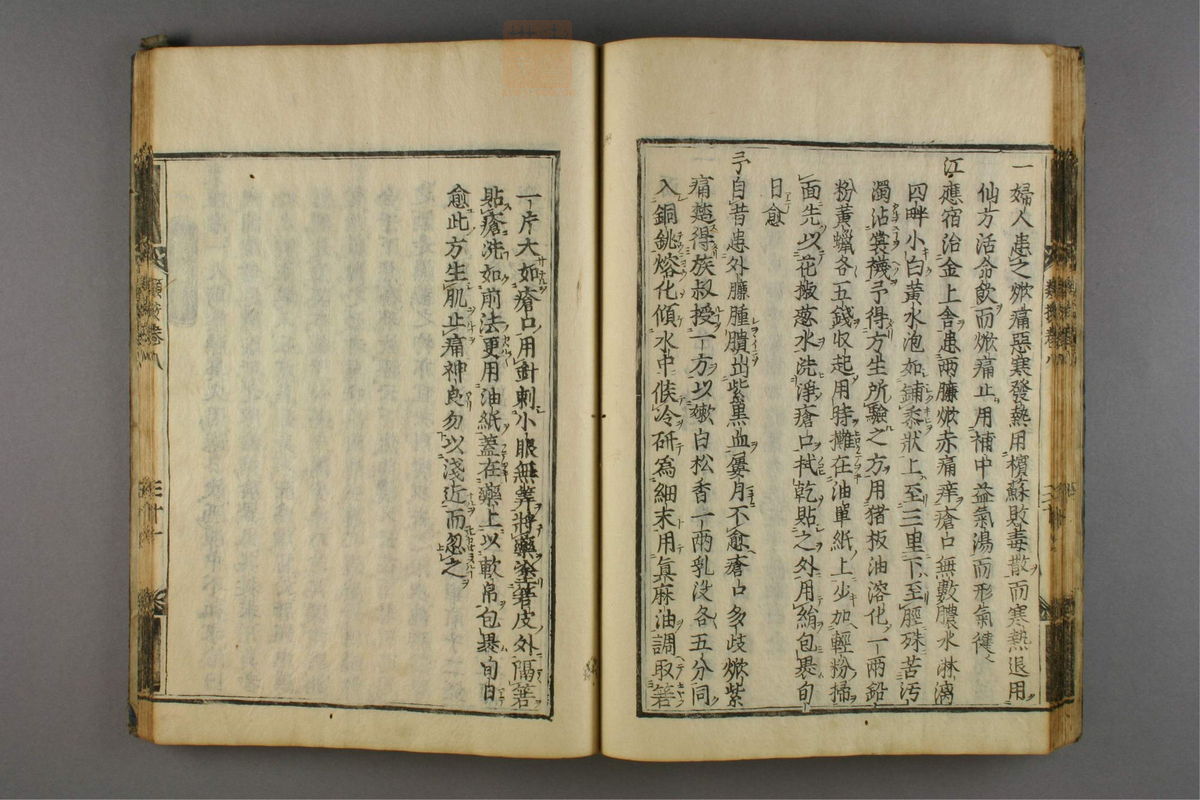 一婦人患之焮痛惡寒發熱用檳蘇敗毒散而寒熱退用
仙方活命飲而焮痛止用補中益氣湯而形氣健
江應宿治金上舍患兩臁焮赤痛痒瘡口無數膿水淋漓
四畔小白黃水泡如鋪黍狀上至三里下至脛殊苦汚
濁沾裳襪予得方生所驗之方用猪板油溶化一兩鉛
粉黃蠟各五錢收起用時攤在油單紙上少加輕粉掃
面先以花椒葱水洗淨瘡口拭乾貼之外用絹包裹旬
日愈
予自昔患外臁腫膭出紫黑血屢月不愈瘡口多歧焮紫
痛楚得族叔授一方以嫰白松香一兩乳没各五分同
入銅銚熔化傾水中候冷研為細末用真麻油調取箬
一片大如瘡口用針刺小眼無筭將藥塗箬皮外隔箬
貼瘡洗如前法更用油紙蓋在藥上以軟帛包裹旬日
愈此方生肌止痛神良勿以淺近而忽之
類按卷八
三十